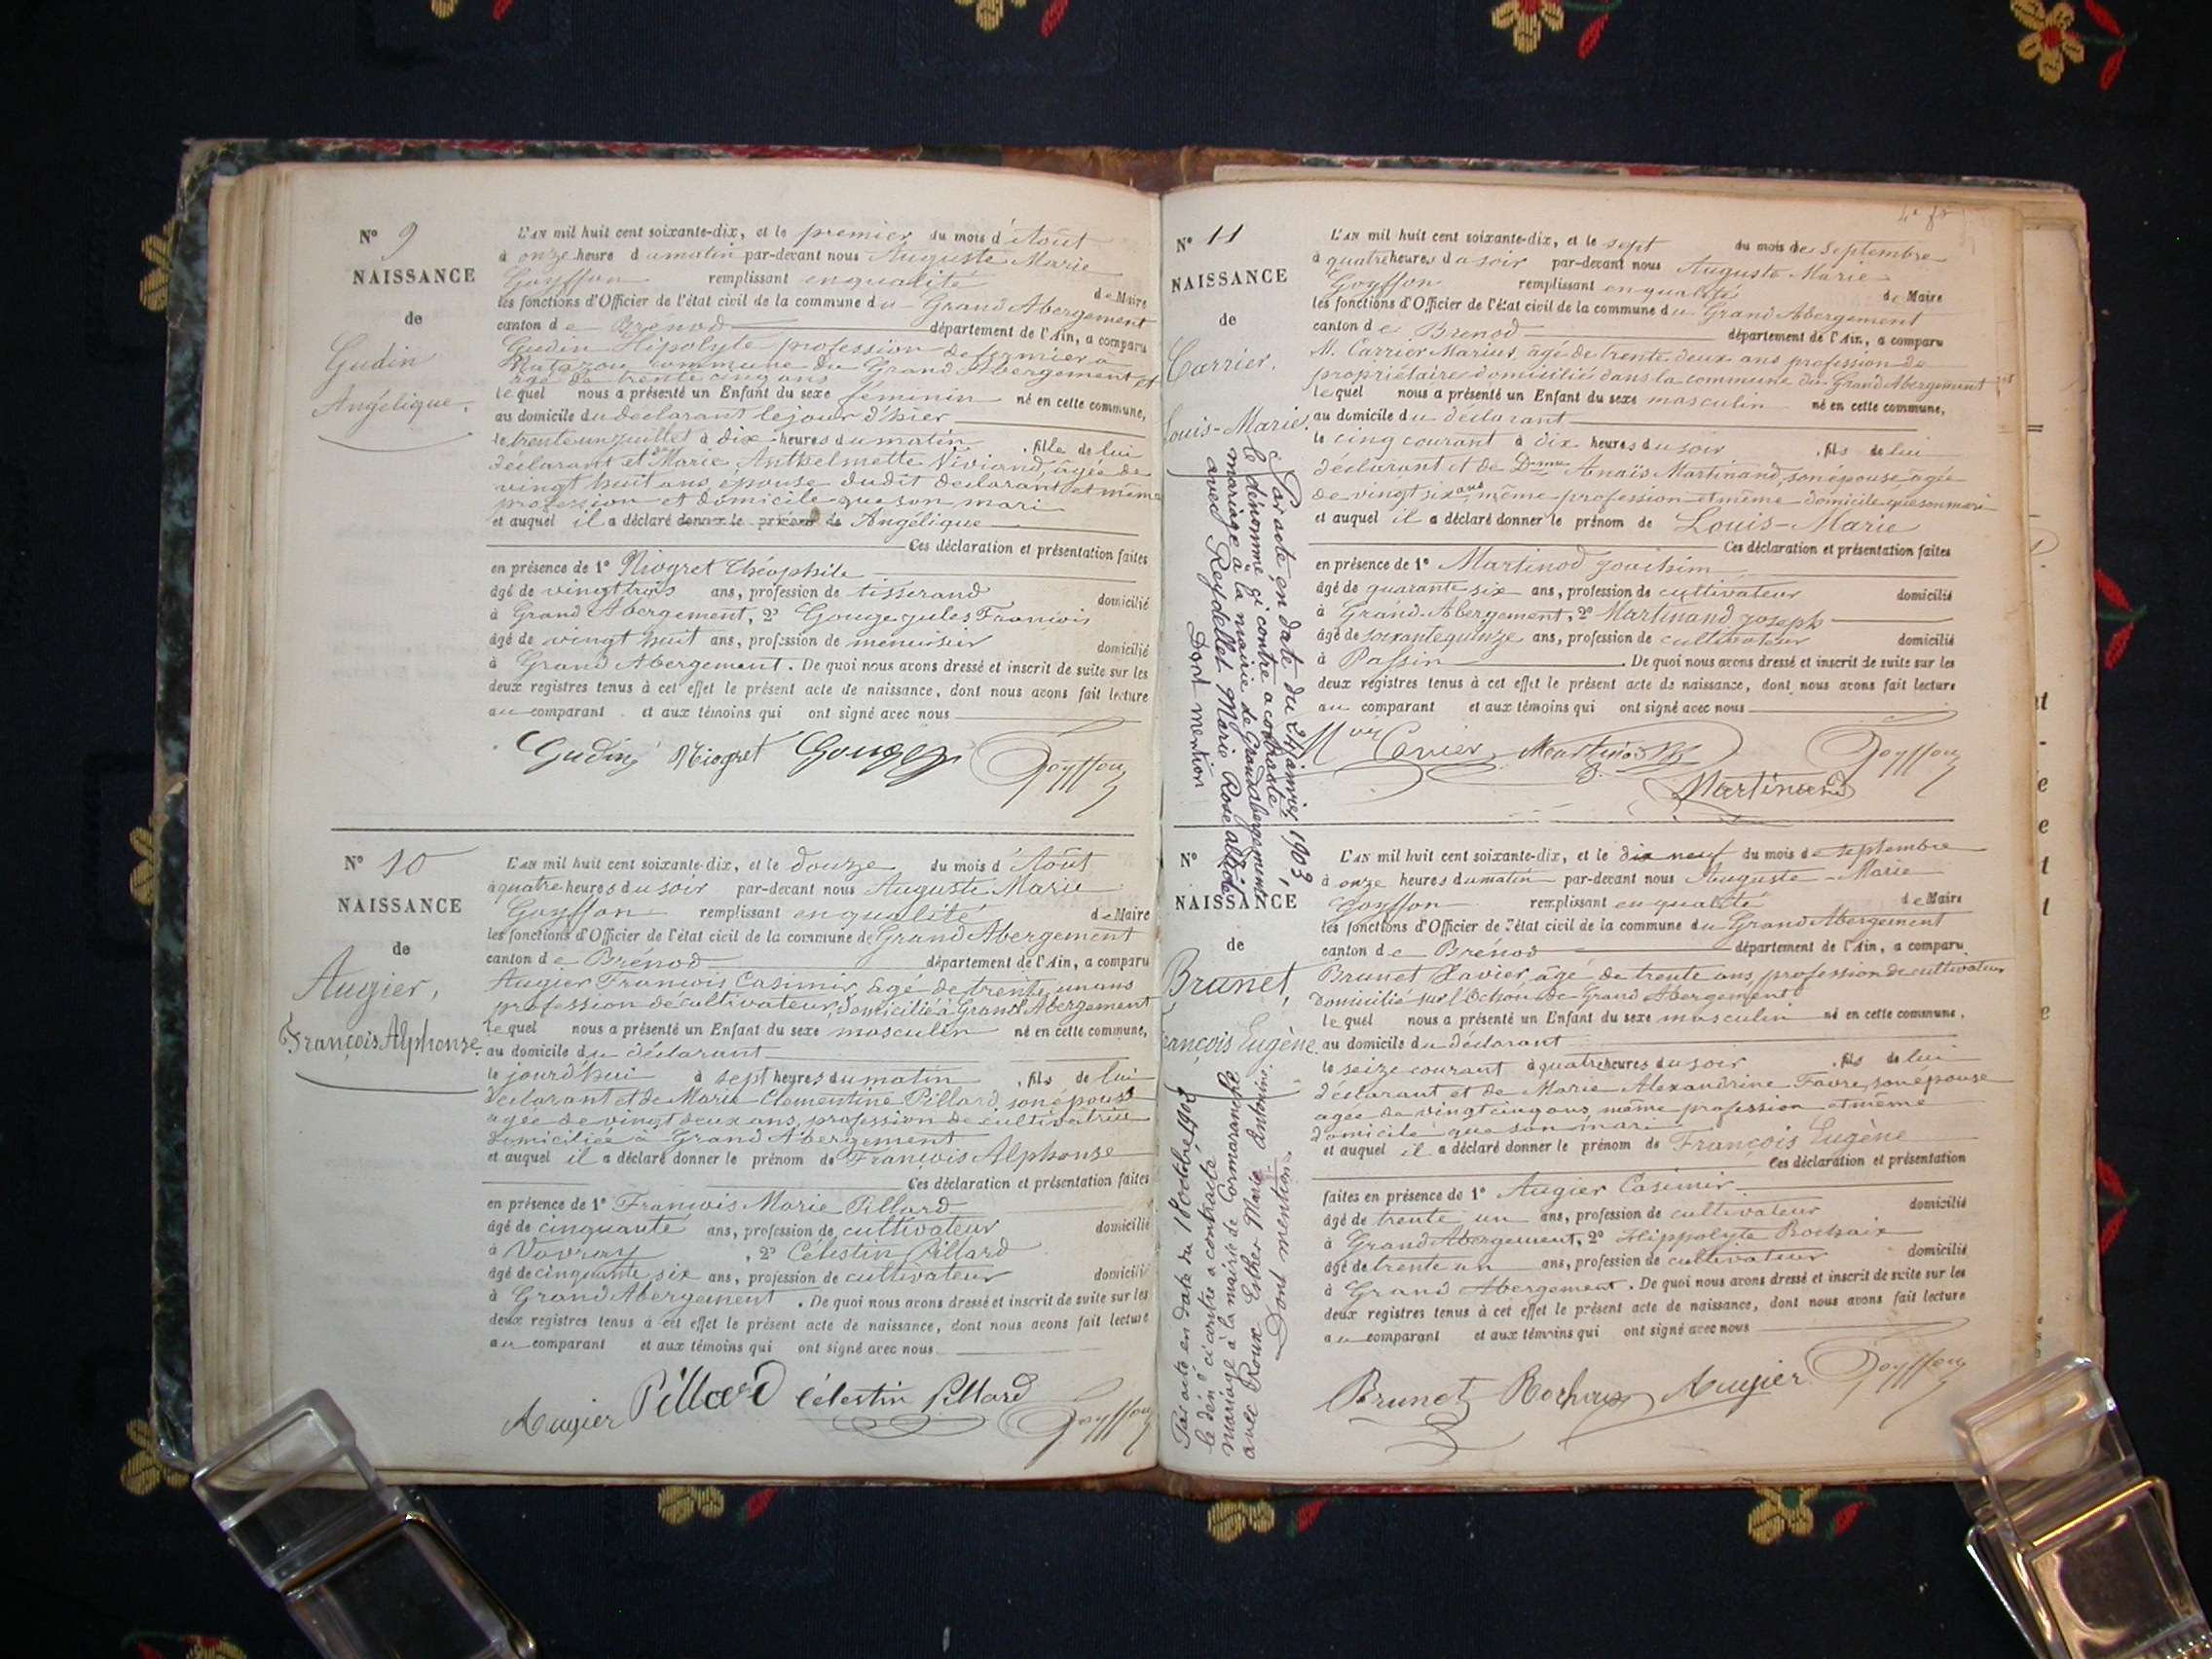 N° 9
NAISSANCE
de
Gudin
Angélique.
L'AN mil huit cent soixante-dix, et le premier du mois d'Août
à onze heure du matin par-devant nous Auguste Marie
Goyffon remplissant en qualité de Maire
les fonctions d'Officier de l'état civil de la commune du Grand Abergement
canton de Brénod département de l'Ain, a comparu
Gudin Hipolyte profession de fermier à
commune du Grand Abergement et
âgé de trente cinq ans
lequel nous a présenté un Enfant du sexe féminin né en cette commune,
au domicile du déclarant le jour d'hier
le trente un juillet à dix heures du matin , fille de lui
déclarant et de Marie Anthelmette Viviand, âgée de
vingt huit ans, épouse dudit déclarant et même
profession et domicile que son mari
et auquel il a déclaré donner le prénom de Angélique
Ces déclaration et présentation faites
en présence de 1° Niogret Théophile
âgé de vingt trois ans, profession de tisserand domicilié
à Grand Abergement, 2° Gouge jules François
âgé de vingt huit ans, profession de menuisier domicilié
à Grand Abergement. De quoi nous avons dressé et inscrit de suite sur les
deux registres tenus à cet effet le présent acte de naissance, dont nous avons fait lecture
au comparant et aux témoins qui ont signé avec nous
Gudin Niogret Gouge Goyffon
N° 10
NAISSANCE
de
Augier,
François Alphonse.
L'AN mil huit cent soixante-dix, et le douze du mois d'Août
à quatre heures du soir par-devant nous Auguste Marie
Goyffon remplissant en qualité de Maire
les fonctions d'Officier de l'état civil de la commune de Grand Abergement
canton de Brénod département de l'Ain, a comparu
Augier François Casimir, âgé de trente un ans
profession de cultivateur, domicilié à Grand Abergement
lequel nous a présenté un Enfant du sexe masculin né en cette commune,
au domicile du déclarant
le jourd'hui à sept heures du matin , fils de lui
déclarant et de Marie Clementine Pillard son épouse
agée de vingt deux ans, profession de cultivatrice
domiciliée à Grand Abergement
et auquel il a déclaré donner le prénom de François Alphonse
Ces déclaration et présentation faites
en présence de 1° François Marie Pillard
âgé de cinquante ans, profession de cultivateur domicilié
à Vovray , 2° Célestin Pillard
âgé de cinquante six ans, profession de cultivateur domicilié
à Grand Abergement . De quoi nous avons dressé et inscrit de suite sur les
deux registres tenus à cet effet le présent acte de naissance, dont nous avons fait lecture
au comparant et aux témoins qui ont signé avec nous
Augier Pillard Célestin Pillard Goyffon
N° 11
NAISSANCE
de
Carrier,
Louis-Marie.
Par acte en date du 24 janvier 1903,
le dénommé ci contre a contracté
mariage à la mairie de Grand abergement
avec Reydellet Marie Rose
Dont mention
L'AN mil huit cent soixante-dix, et le sept du mois de Septembre
à quatre heures du soir par-devant nous Auguste Marie
Goyffon remplissant en qualité de Maire
les fonctions d'Officier de l'état civil de la commune du Grand Abergement
canton de Brenod département de l'Ain, a comparu
M. Carrier Marius, âgé de trente deux ans profession de
propriétaire domicilié dans la commune du Grand Abergement
lequel nous a présenté un Enfant du sexe masculin né en cette commune,
au domicile du déclarant
le cinq courant à dix heures du soir , fils de lui
déclarant et de Dame Anaïs Martinand, son épouse âgée
de vingt six ans même profession et même domicile que son mari
et auquel il a déclaré donner le prénom de Louis-Marie
Ces déclaration et présentation faites
en présence de 1° Martinod Joachim
âgé de quarante six ans, profession de cultivateur domicilié
à Grand Abergement, 2° Martinand joseph
âgé de soixante quinze ans, profession de cultivateur domicilié
à Passin . De quoi nous avons dressé et inscrit de suite sur les
deux registres tenus à cet effet le présent acte de naissance, dont nous avons fait lecture
au comparant et aux témoins qui ont signé avec nous
Mius Carrier Martinod Goyffon
Martinand
N°
NAISSANCE
de
Brunet,
ançois Eugène.
Par acte en date du 18 octobre
le dén é ci contre a contracté
mariage à la mairie de Cormaranche
avec Roux Esther Marie Antonine.
Dont mention.
L'AN mil huit cent soixante-dix, et le dix neuf du mois de septembre
à onze heures du matin par-devant nous Auguste-Marie
Goyffon remplissant en qualité de Maire
les fonctions d'Officier de l'état civil de la commune du Grand Abergement
canton de Brénod département de l'Ain, a comparu
Brunet Xavier, âgé de trente ans, profession de cultivateur
domicilié sur de Grand Abergement
lequel nous a présenté un Enfant du sexe masculin né en cette commune,
au domicile du déclarant
le seize courant à quatre heures du soir , fils de lui
déclarant et de Marie Alexandrine Favre, son épouse
agée de vingt cinq ans, même profession et même
domicile que son mari
et auquel il a déclaré donner le prénom de François Eugène
Ces déclaration et présentation
faites en présence de 1° Augier Casimir
âgé de trente un ans, profession de cultivateur domicilié
à Grand Abergement, 2° Hippolyte Rochaix
âgé de trente un ans, profession de cultivateur domicilié
à Grand Abergement. De quoi nous avons dressé et inscrit de suite sur les
deux registres tenus à cet effet le présent acte de naissance, dont nous avons fait lecture
au comparant et aux témoins qui ont signé avec nous
Brunet Rochaix Augier Goyffon